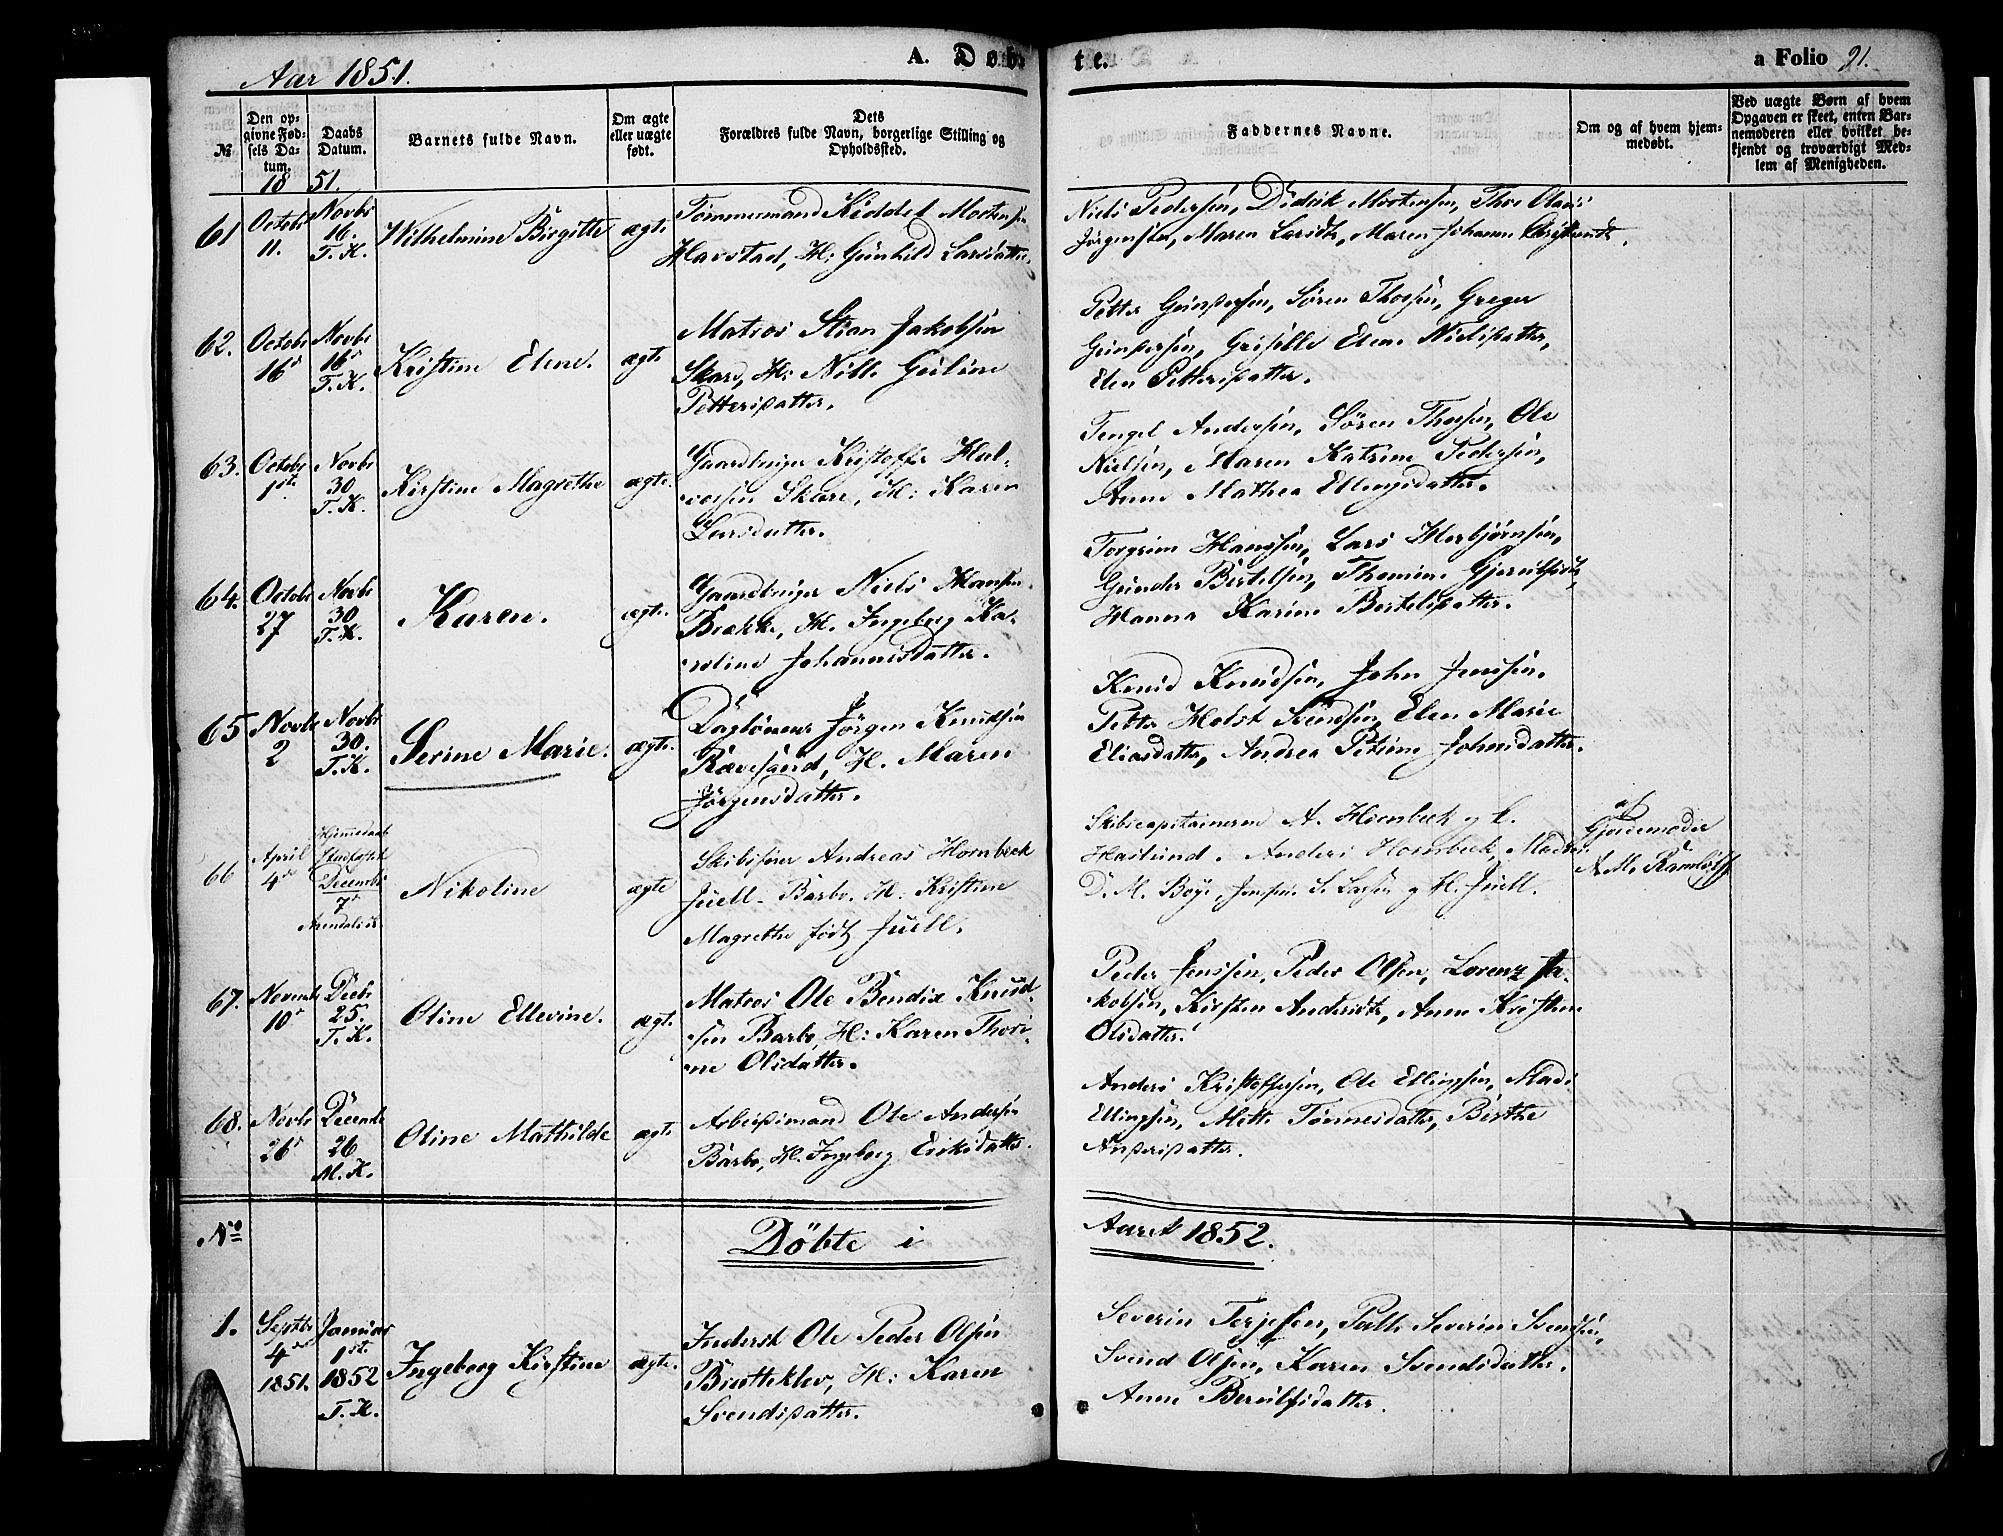 Aar 1851.
A. Døb
te.
a Folio 21.
№
Den op-
givne Fød-
sels Da-
tum.
Daabs
Datum.
Barnets fulde Navn.
Om ægte
eller uægte
født.
Dets
Forældres fulde Navn, borgerlige Stilling og
Opholdssted.
Faddernes Navne.
Om og af hvem hjem-
medøbt.
Ved uægte Børn af hvem
Opgaven er skeet, enten Bar-
nemoderen eller hvilket be-
kjendt og troværdigt Med-
lem af Menigheden.
18 51.
61
Octobr
11.
Novbr
16.
T. K.
Wilhelmine Birgitte
ægte
Tømmermand Kiddel Mortensen
Havstad, H: Gunhild Larsdatter.
Niels Pedersen, Didrik Mortensen, Thor Olaus
Jörgensen, Maren Larsdtr, Maren Johanne
62.
Octobr
16d
Novbr
16d
T. K.
Kristine Elene.
ægte
Matros Stian Jakobsen
Skare, H:
Pettersdatter.
Petter Gundersen, Sören Thorsen, Greger
Gundersen, Grisille Elene Nielsdatter,
Elen Pettersdatter.
63.
Octobr
1ste
Novbr
30
T. K.
Kirstine Magrethe
ægte.
Gaardbruger Kristoffer Hal-
vorsen Skare, H: Karen
Larsdatter.
Tengel Andersen, Sören Thorsen, Ole
Nielsen, Maren Katrine Pedersen,
Anne Mathea Ellingsdatter.
64.
Octobr
27
Novbr
30
T. K.
Karen.
ægte.
Gaardbruger Niels Hansen
Brække, H. Ingeborg Ka-
roline Johannesdatter.
Torgrim Hanssen, Lars Herbjörnsen,
Gunder Bertelsen, Thomine
Hanna Karine Bertelsdatter.
65
Novbr
2
Novbr
30.
T. K.
Serine Marie.
ægte.
Daglönner Jörgen Knudsen
Rævesand, H. Maren
Jörgensdatter.
Knud Knudsen, John Jenssen,
Petter Holst Svendsen, Elen Marie
Eliasdatter, Andrea Petrine Johnsdatter.
66
April
4de
Hjemmedaab
Stadfæstet
Decembr
7d
Arendals K.
Nikoline
ægte
Skibsfører Andreas Hornbeck
Juell - Barbo. H: Kristine
Magrethe født Juell.
Skibscapitainerne A. Hornbeck og C.
Haslund. Anders Hornbeck, Mad:
D. M. Boye, Jomfru S. Lassen og H. Juell.
af
Gjordemoder
A. M. Ramløs
67.
Novembr
10d
Decbr
25.
T. K.
Oline Ellevine.
ægte.
Matros Ole Bendix Knud-
sen Barbo, H: Karen Thori-
ne Olsdatter.
Peder Jenssen, Peder Olsen, Lorenz Ja-
kobsen, Kirsten Andersdtr, Anne Kristine
Olsdatter.
68.
Novbr
26d
Decembr
26
M. K.
Oline Mathilde
ægte
Arbeidsmand Ole Andersen
Barbo, H. Ingeborg Eriksdatter.
Anders Kristoffersen, Ole Ellingsen, Mads
Ellingsen, Mette Tönnesdatter, Birthe
Andersdatter.
No
Döbte i
Aaret 1852.
1.
Septbr
4de
1851.
Januar
1ste
1852
T. K.
Ingeborg Kirstine
ægte.
Inderst Ole Peder Olsen
Bratteklev, H: Karen
Svendsdatter.
Severin Terjesen, Severin Svendsen,
Svend Olsen, Karen Svendsdatter.
Anne Berulfsdatter.